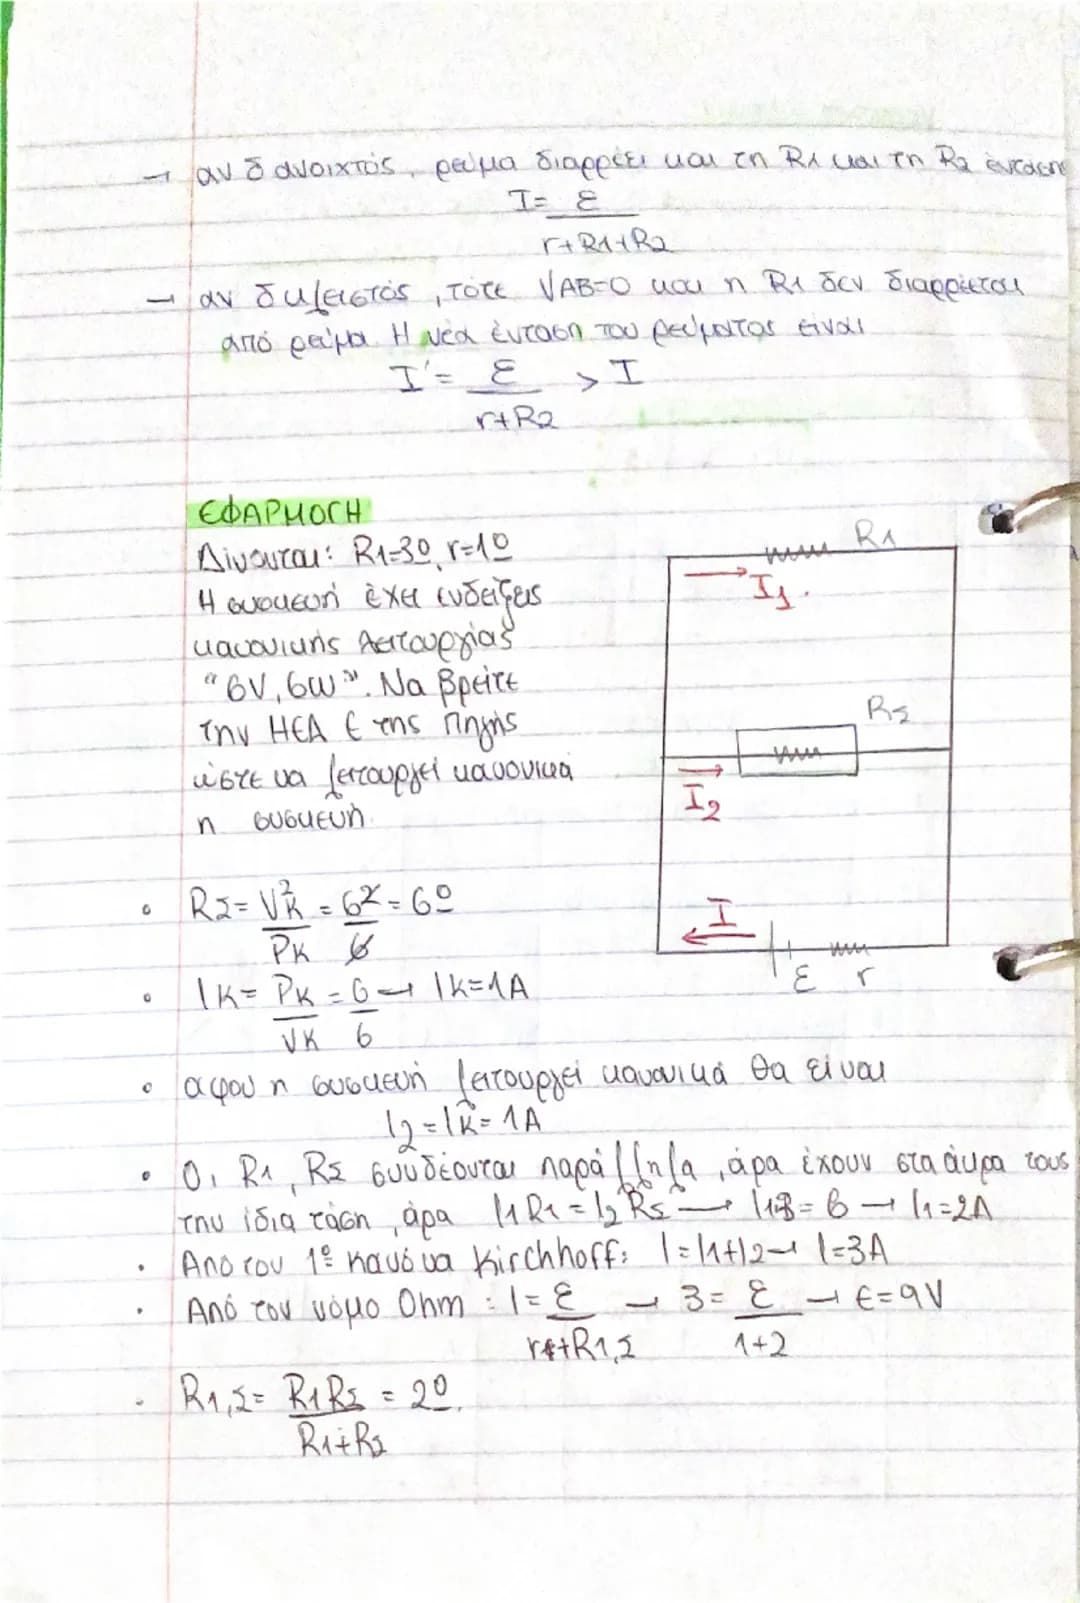 → αν δ ανοιχτός, ρεύμα διαρρέει και τη R1 και τη R2 έντασης
I = ε
r+R1+R2
→ αν δ κλειστός, τότε VAB=0 και η R1 δεν διαρρέεται
από ρεύμα. Η νέα ένταση του ρεύματος είναι
I' = ε > I
r+R2
ΕΦΑΡΜΟΓΗ
Δίνονται: R1=3Ω, r=1Ω
R1
Η συσκευή έχει ενδείξεις
I1.
κανονικής λειτουργίας
"6V, 6W". Να βρείτε
την ΗΕΔ Ε της πηγής
RΣ
ώστε να λειτουργεί κανονικά
η συσκευή.
I2
• RΣ = VK² = 6² = 6Ω
PK 6
I
ε r
• IK = PK = 6 → IK=1A
VK 6
• αφού η συσκευή λειτουργεί κανονικά θα είναι
I2 = IK = 1A
• Οι R1, RΣ συνδέονται παράλληλα, άρα έχουν στα άκρα τους
την ίδια τάση, άρα I1 R1 = I2 RΣ → I1 3 = 6 → I1=2A
• Από τον 1º κανόνα Kirchhoff: I=I1+I2 → I=3A
• Από τον νόμο Ohm: I = ε → 3 = ε → ε=9V
r+R1,Σ 1+2
• R1,Σ = R1 RΣ = 2Ω.
R1+RΣ